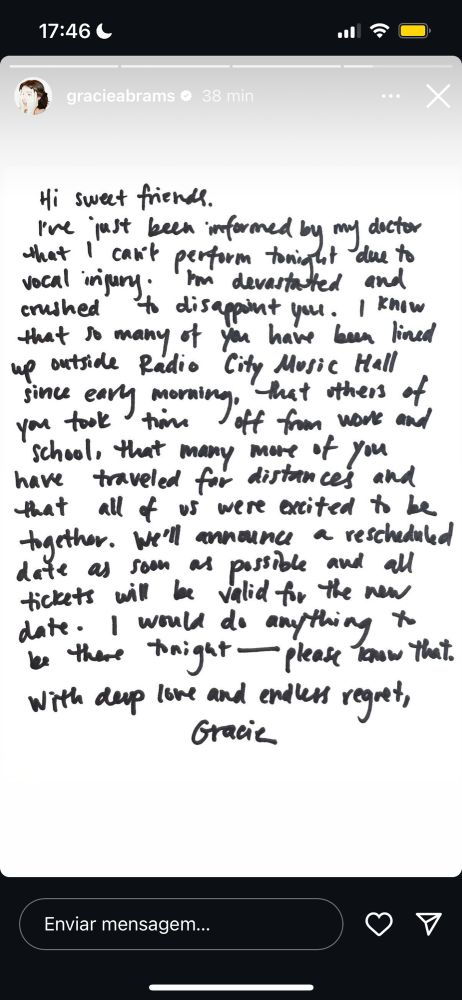 17:46
gracieabrams 38 min
Hi sweet friends.
I've just been informed by my doctor
that I can't perform tonight due to
vocal injury. I'm devastated and
crushed to disappoint you. I know
that so many of you have been lined
up outside Radio City Music Hall
since early morning, that others of
you took time off from work and
school, that many more of you
have traveled far distances and
that all of us were excited to be
together. We'll announce a rescheduled
date as soon as possible and all
tickets will be valid for the new
date. I would do anything to
be there tonight — please know that.
With deep love and endless regret,
Gracie
Enviar mensagem...